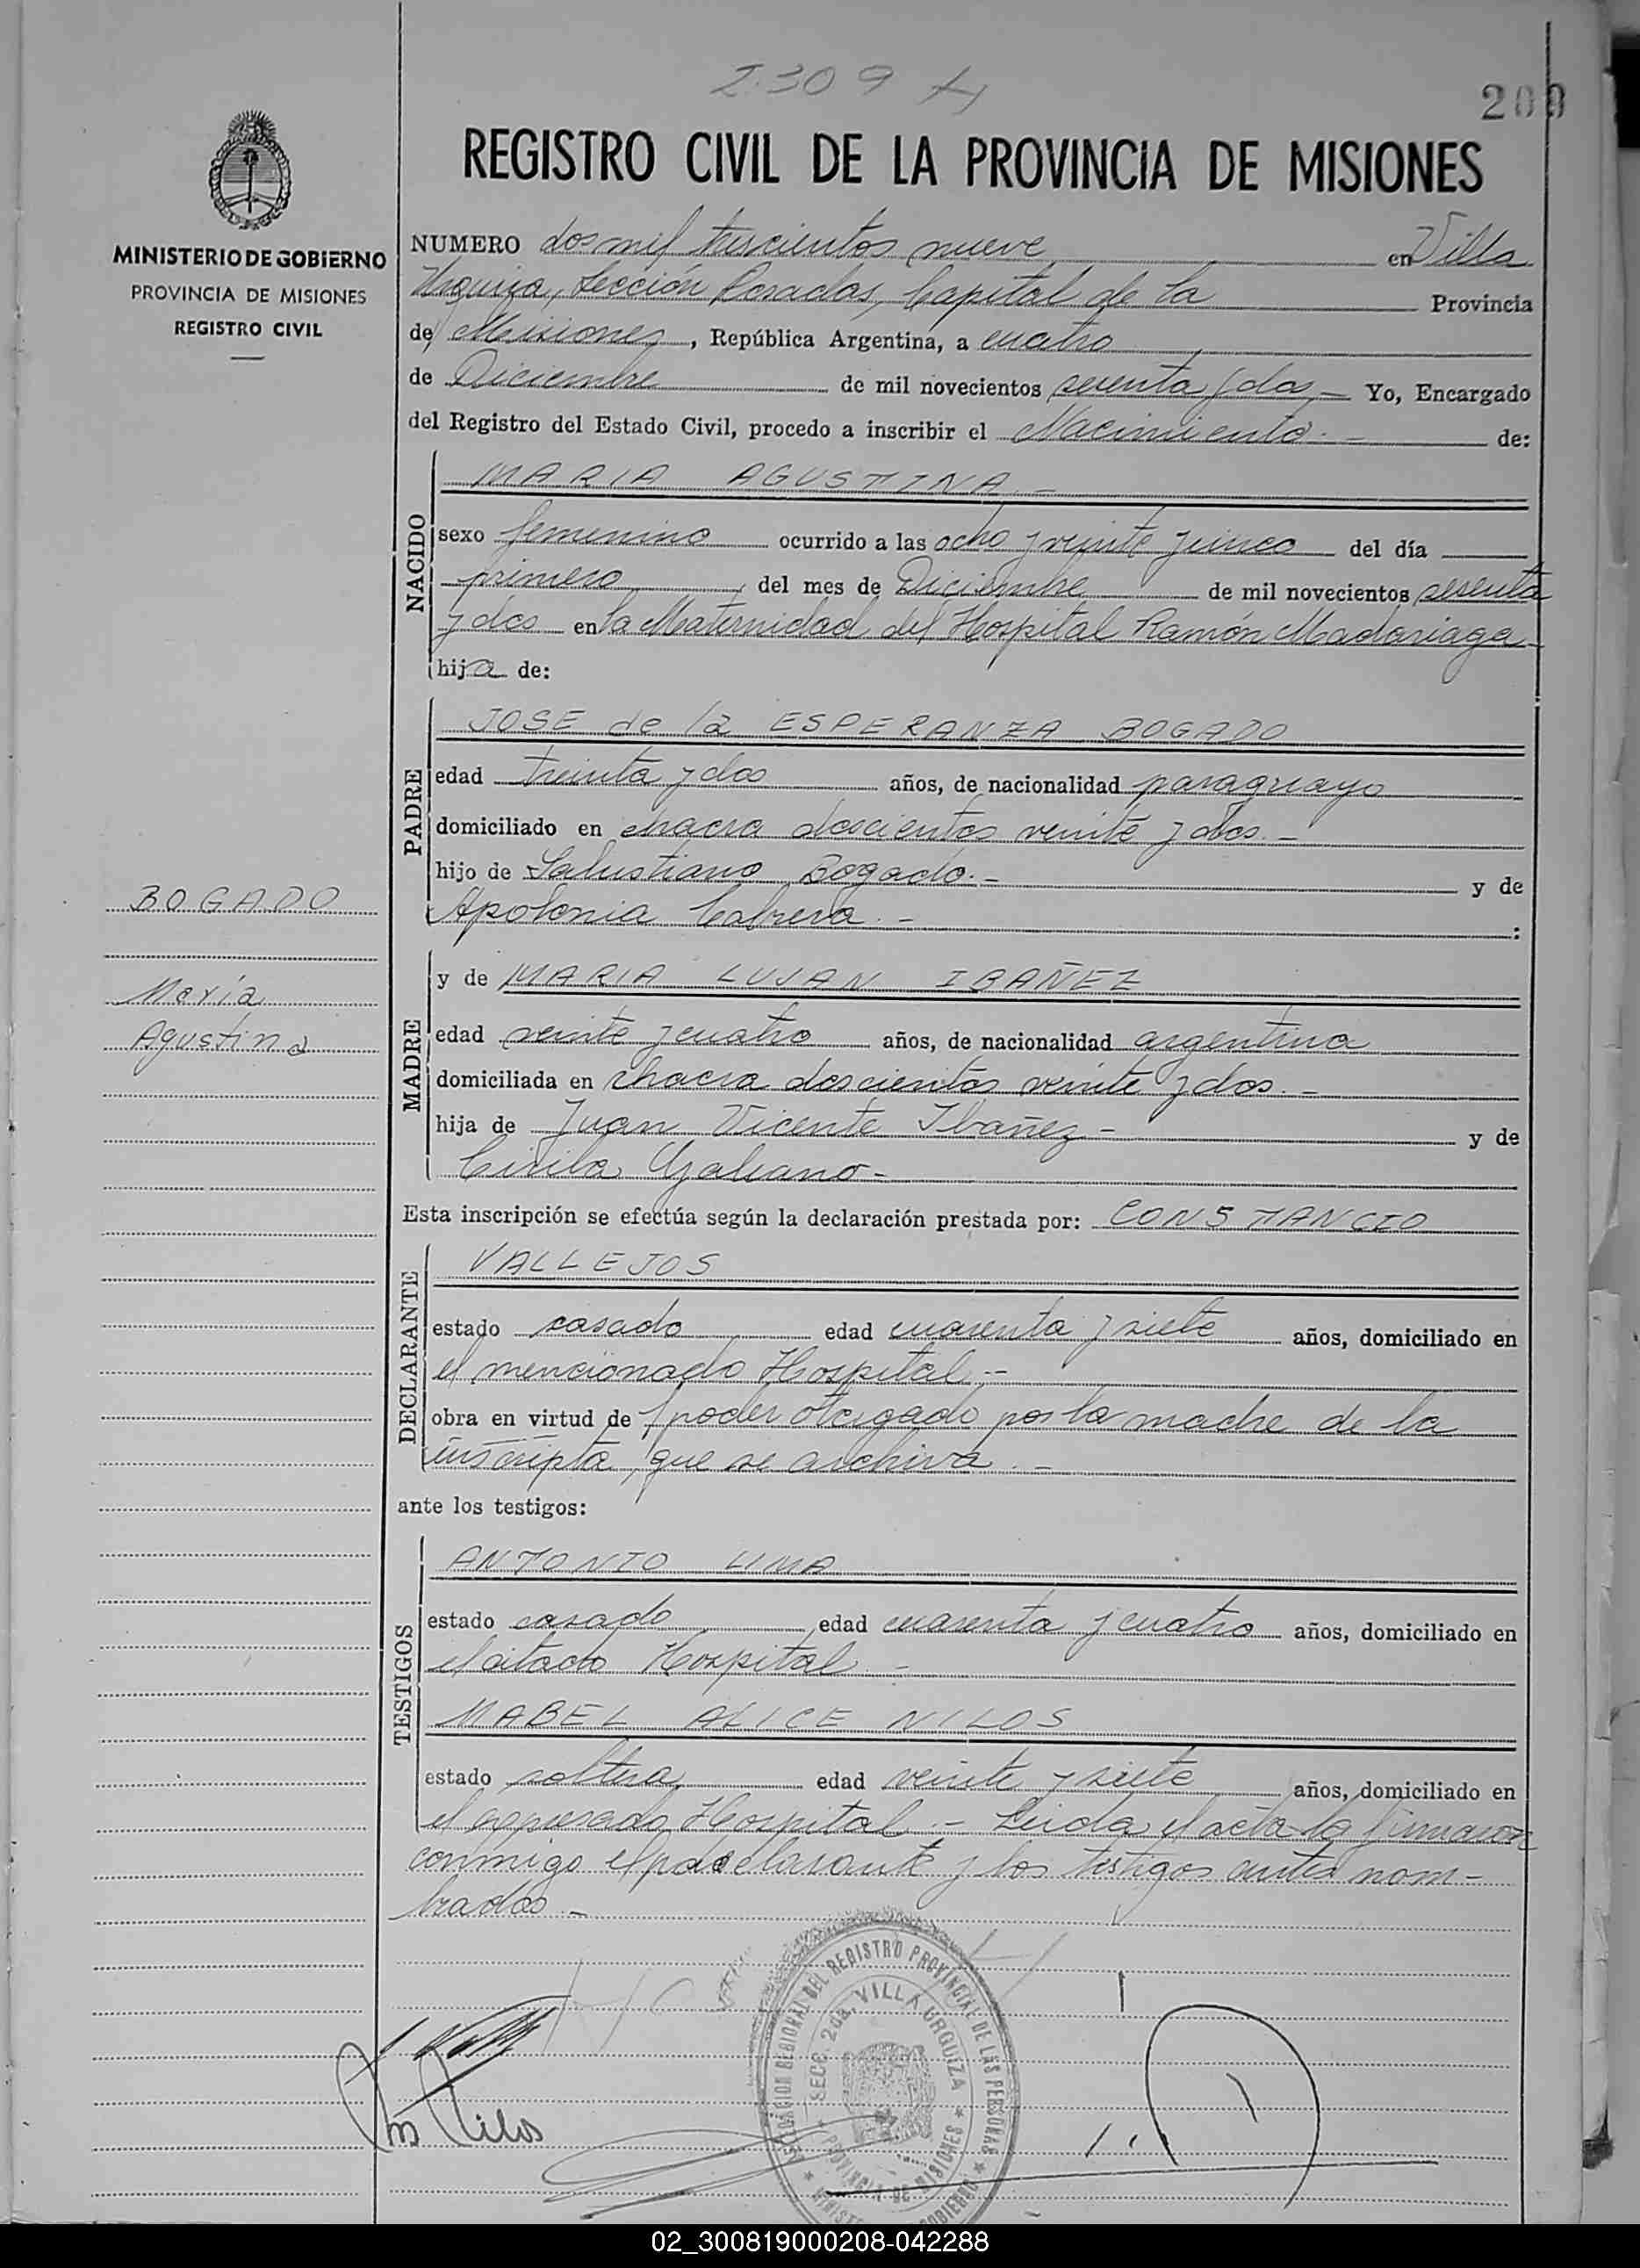 2.309
209
REGISTRO CIVIL DE LA PROVINCIA DE MISIONES
MINISTERIO DE GOBIERNO
PROVINCIA DE MISIONES
REGISTRO CIVIL
NUMERO dos mil trescientos nueve en Villa
Urquiza, Sección Posadas, Capital de la Provincia
de Misiones, República Argentina, a cuatro
de Diciembre de mil novecientos sesenta y dos.- Yo, Encargado
del Registro del Estado Civil, procedo a inscribir el Nacimiento.- de:
NACIDO
MARIA AGUSTINA.-
sexo femenino ocurrido a las ocho y veinte y cinco del día
primero del mes de Diciembre de mil novecientos sesenta
y dos en la Maternidad del Hospital Ramón Madariaga-
hija de:
PADRE
JOSE de la ESPERANZA BOGADO
edad treinta y dos años, de nacionalidad paraguayo
domiciliado en chacra doscientos veinte y dos.-
hijo de Salustiano Bogado.- y de
Apolonia Cabrera.- :
BOGADO
María
Agustina
MADRE
y de MARIA LUJAN IBAÑEZ
edad veinte y cuatro años, de nacionalidad argentina
domiciliada en chacra doscientos veinte y dos.-
hija de Juan Vicente Ibañez- y de
Cirila Galeano-
Esta inscripción se efectúa según la declaración prestada por: CONSTANCIO
DECLARANTE
VALLEJOS
estado casado edad cuarenta y siete años, domiciliado en
el mencionado Hospital.-
obra en virtud de poder otorgado por la madre de la
inscripta, que se archiva.-
ante los testigos:
TESTIGOS
ANTONIO LIMA
estado casado edad cuarenta y cuatro años, domiciliado en
el citado Hospital.-
MABEL ALICE NILOS
estado soltera edad veinte y siete años, domiciliado en
el expresado Hospital.- Leida el acta la firmaron
conmigo el declarante y los testigos antes nom-
brados.-
DELEGACION REGIONAL DEL REGISTRO PROVINCIAL DE LAS PERSONAS
SECC. 2da. VILLA URQUIZA
PROVINCIA DE MISIONES
Nilos
02_300819000208-042288